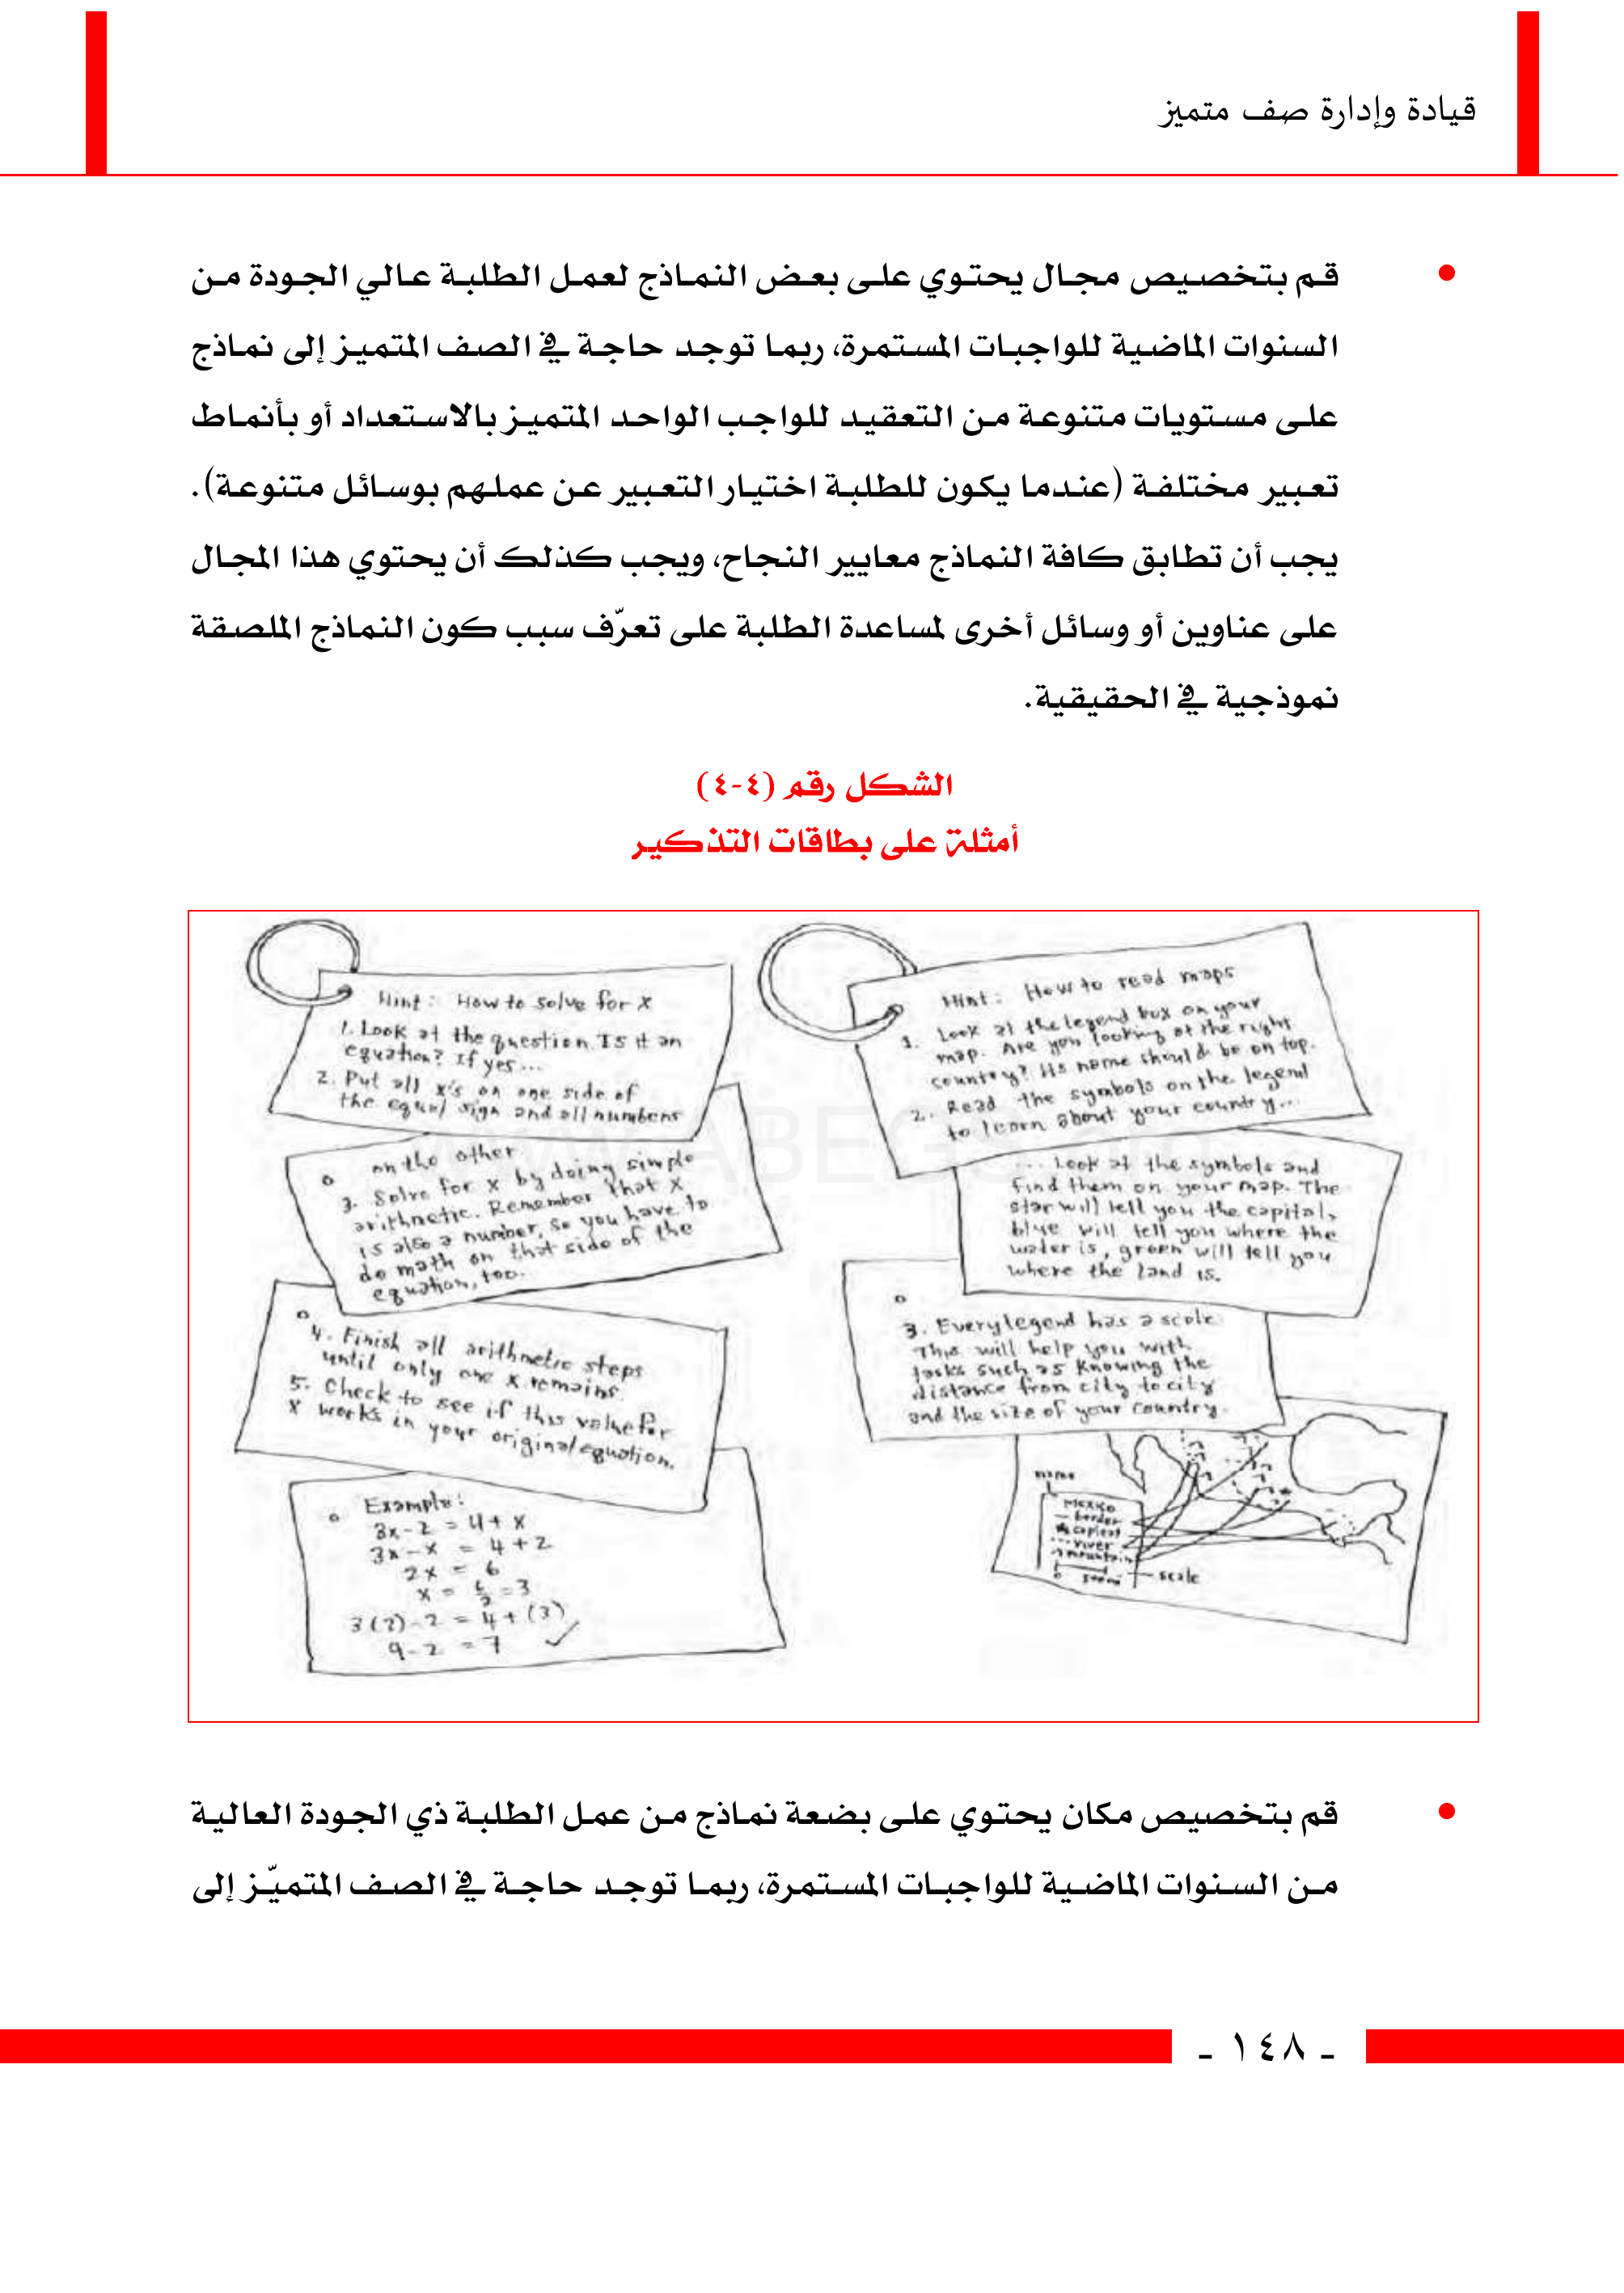 قيادة وإدارة صف متميز
• قم بتخصيص مجال يحتوي على بعض النماذج لعمل الطلبة عالي الجودة من
السنوات الماضية للواجبات المستمرة، ربما توجد حاجة في الصف المتميز إلى نماذج
على مستويات متنوعة من التعقيد للواجب الواحد المتميز بالاستعداد أو بأنماط
تعبير مختلفة (عندما يكون للطلبة اختيار التعبير عن عملهم بوسائل متنوعة).
يجب أن تطابق كافة النماذج معايير النجاح، ويجب كذلك أن يحتوي هذا المجال
على عناوين أو وسائل أخرى لمساعدة الطلبة على تعرّف سبب كون النماذج الملصقة
نموذجية في الحقيقية.
الشكل رقم (٤-٤)
أمثلة على بطاقات التذكير
Hint: How to solve for x
1. Look at the question. Is it an
equation? If yes...
2. Put all x's on one side of
the equal sign and all numbers
on the other
3. Solve for x by doing simple
arithmetic. Remember that x
is also a number, so you have to
do math on that side of the
equation, too.
4. Finish all arithmetic steps
until only one x remains.
5. Check to see if this value for
x works in your original equation.
Example:
3x-2 = 4+x
3x-x = 4+2
2x = 6
x = 6/2 = 3
3(2)-2 = 4+(3)
9-2 = 7 ✓
Hint: How to read maps
1. Look at the legend box on your
map. Are you looking at the right
country? Its name should be on top.
2. Read the symbols on the legend
to learn about your country...
... Look at the symbols and
find them on your map. The
star will tell you the capital,
blue will tell you where the
water is, green will tell you
where the land is.
3. Every legend has a scale.
This will help you with
tasks such as knowing the
distance from city to city
and the size of your country.
name
Mexico
border
river
mountain
scale
• قم بتخصيص مكان يحتوي على بضعة نماذج من عمل الطلبة ذي الجودة العالية
من السنوات الماضية للواجبات المستمرة، ربما توجد حاجة في الصف المتميّز إلى
- ١٤٨ -